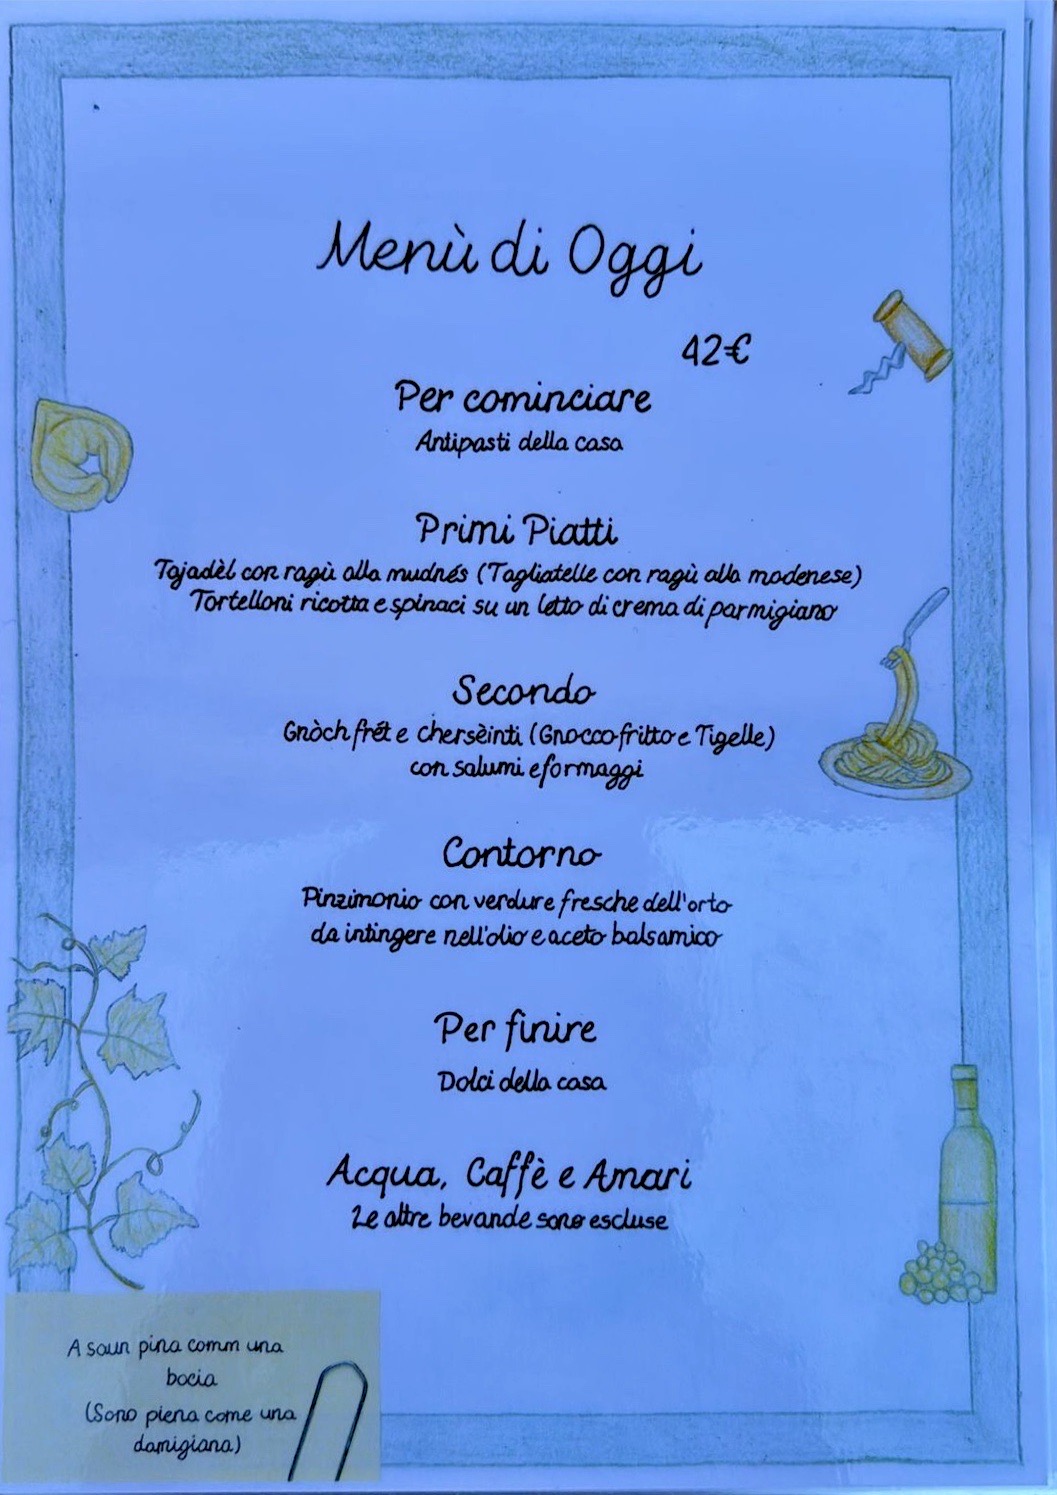 Menù di Oggi
42€
Per cominciare
Antipasti della casa
Primi Piatti
Tajadèl con ragù alla mudnés (Tagliatelle con ragù alla modenese)
Tortelloni ricotta e spinaci su un letto di crema di parmigiano
Secondo
Gnòch frét e chersèinti (Gnocco fritto e Tigelle)
con salumi e formaggi
Contorno
Pinzimonio con verdure fresche dell'orto
da intingere nell'olio e aceto balsamico
Per finire
Dolci della casa
Acqua, Caffè e Amari
Le altre bevande sono escluse
A soun pina comm una
bocia
(Sono piena come una
damigiana)